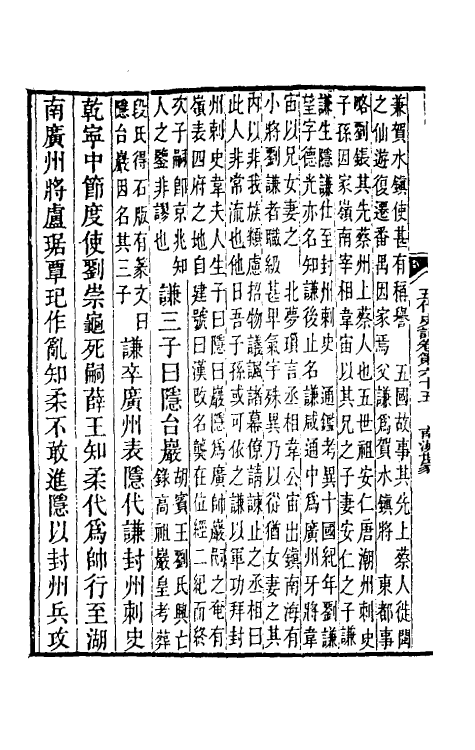 兼賀水鎮使甚有稱譽　五國故事其先上蔡人徙閩
之仙遊復遷番禺因家焉　父謙為賀水鎮將　東都事
略劉鋹其先蔡州上蔡人也五世祖安仁唐潮州刺史
子孫因家嶺南先宰相韋宙以其兄之子妻安仁之子謙
謙生隱謙仕至封州刺史　通鑑考異十國紀年劉謙
望字德光亦名知謙後止名謙咸通中為廣州牙將韋
宙以兄女妻之　北夢瑣言丞相韋公宙出鎮南海有
小將劉謙者職級甚卑氣宇殊異乃以從猶女妻之其
內以非我族類慮招物議諷諸幕僚請諫止之丞相曰
此人非常流也他日吾子孫或可依之謙以軍功拜封
州刺史韋夫人生子曰隱曰巖隱為廣帥巖嗣之奄有
嶺表四府之地自建號曰漢改名龑在位經二紀而終
次子嗣卽京兆知
人之鑒非謬也
謙三子曰隱台巖
胡賓王劉氏興亡
錄高祖巖皇考葬
段氏得石版有篆文曰
隱台巖因名其三子
謙卒廣州表隱代謙封州刺史
乾寧中節度使劉崇龜死嗣薛王知柔代為帥行至湖
南廣州將盧琚覃玘作亂知柔不敢進隱以封州兵攻
五代史記卷第六十五
南漢世家